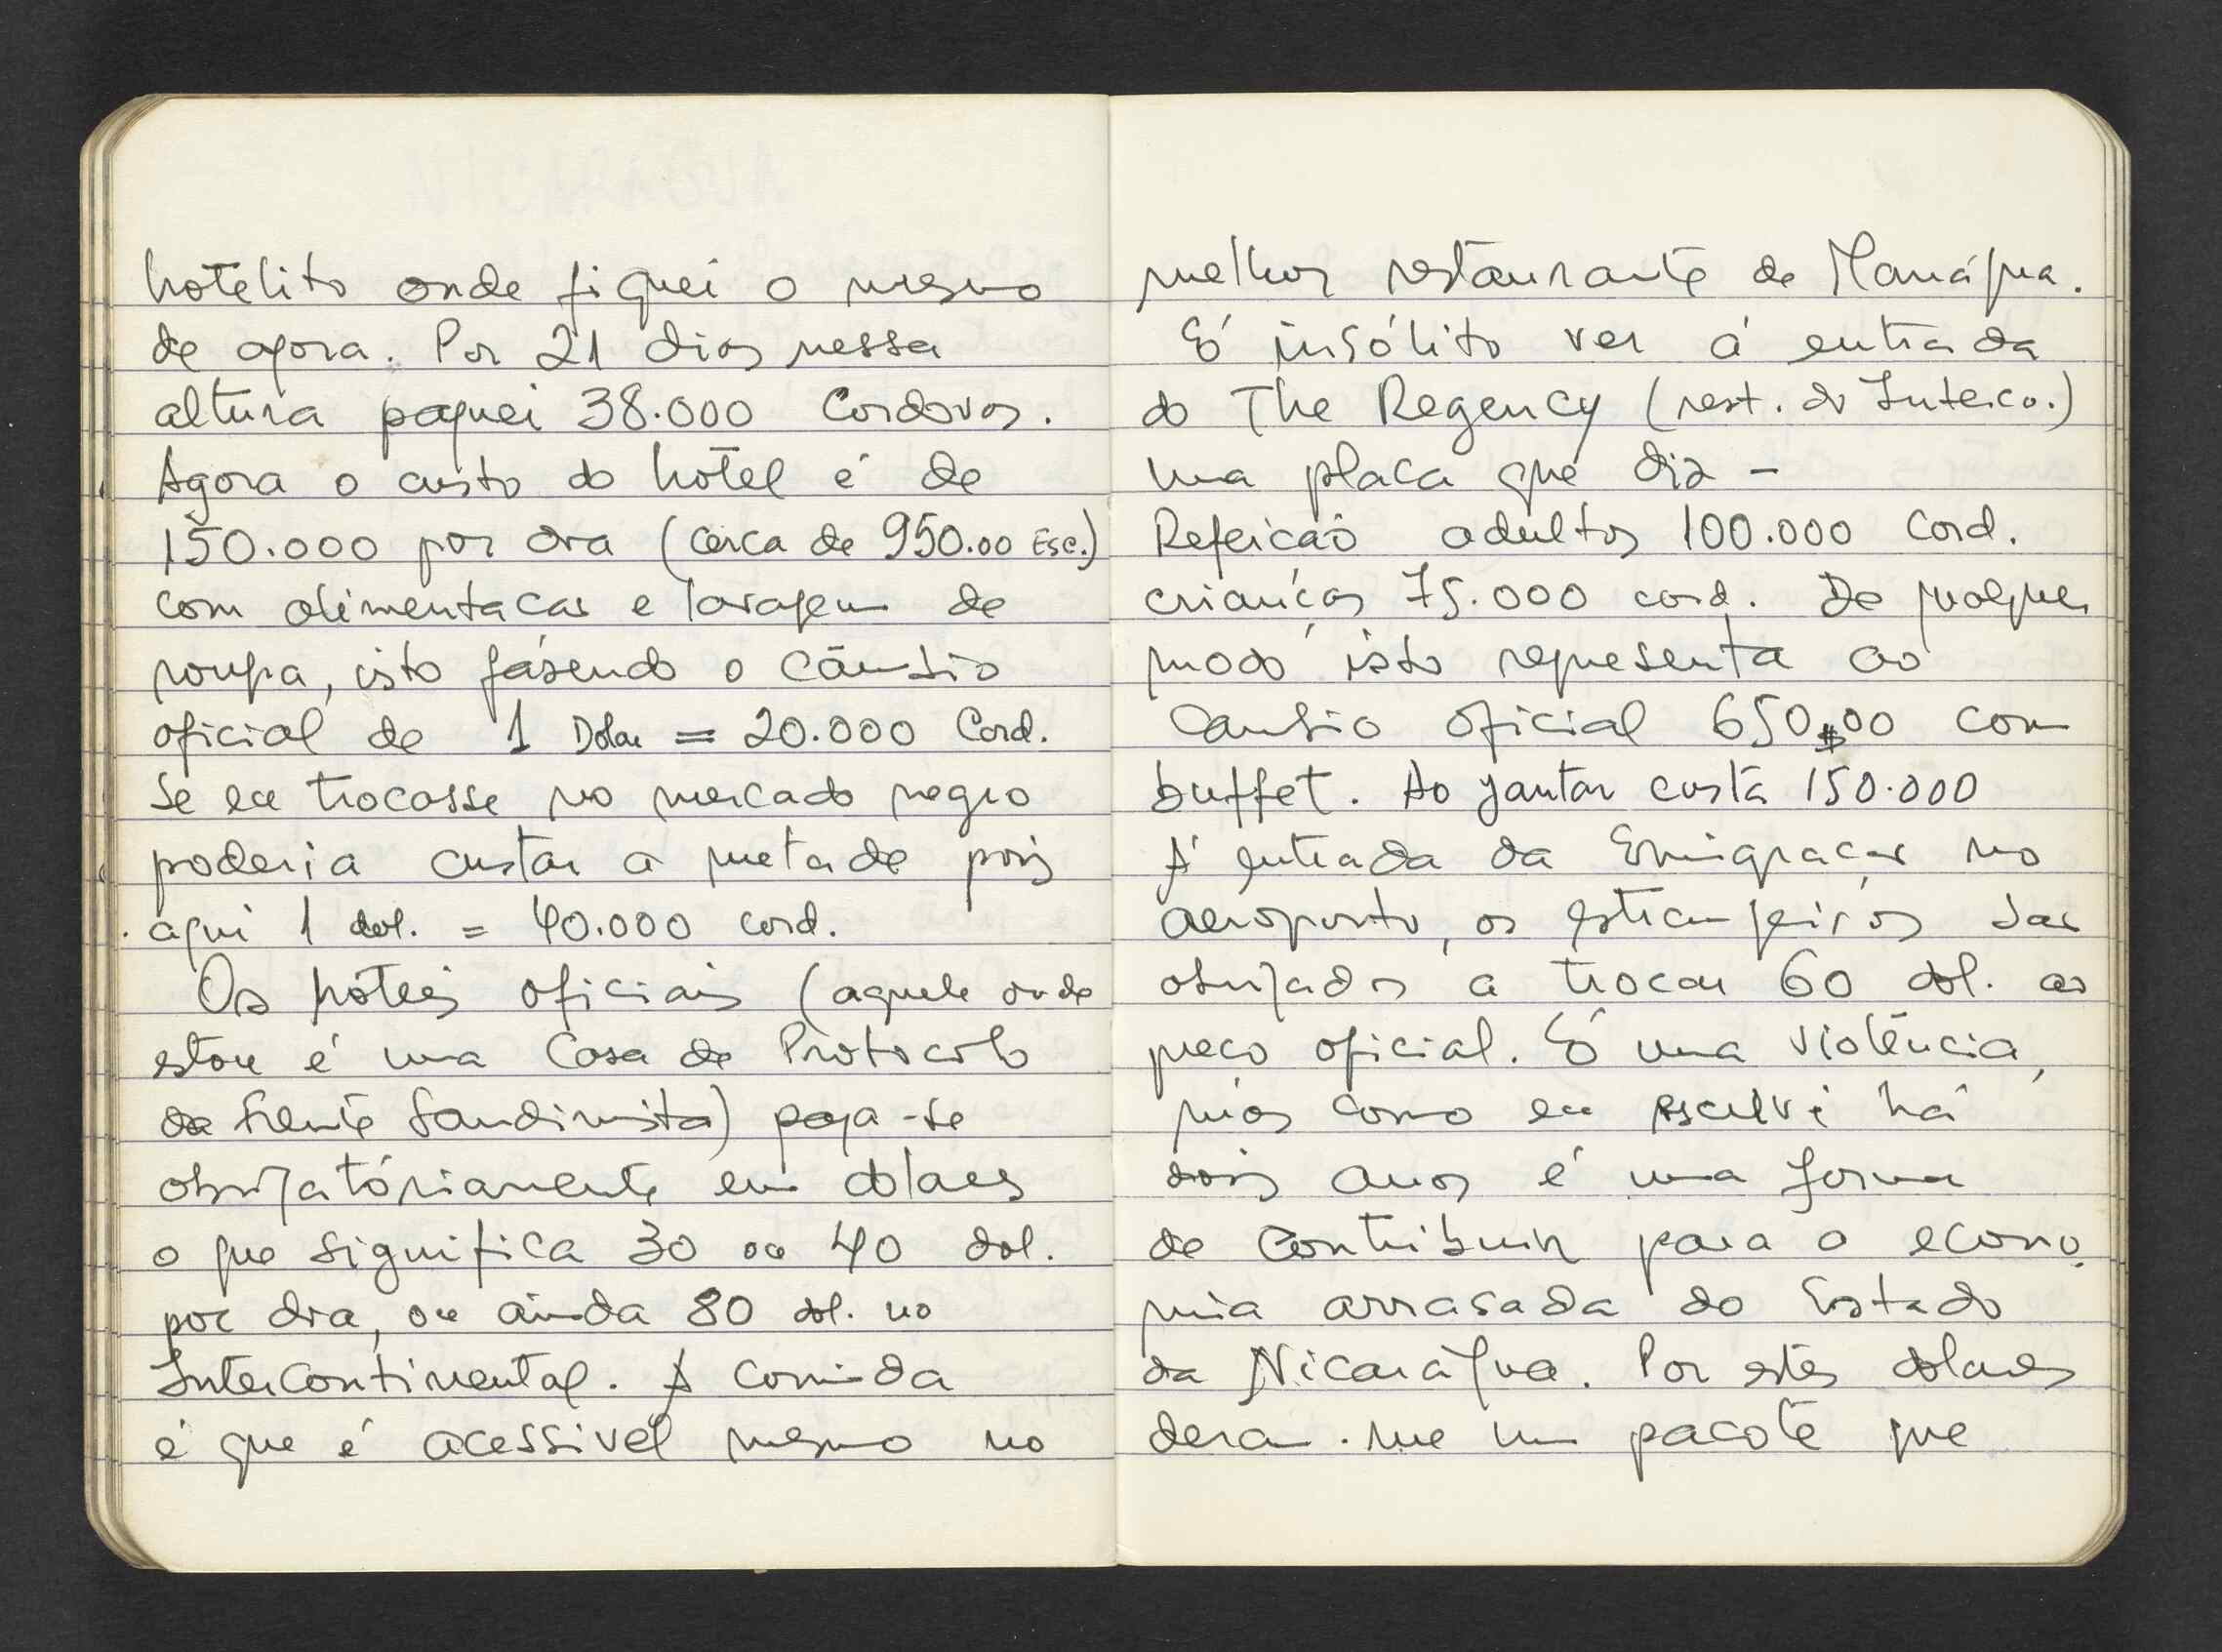 hotelito onde fiquei o mesmo
de agora. Por 21 dias nessa
altura paguei 38.000 Cordovas.
Agora o custo do hotel é de
150.000 por dia (cerca de 950.00 Esc.)
com alimentacao e lavagem de
roupa, isto fasendo o câmbio
oficial de 1 Dolar = 20.000 Cord.
Se eu trocasse no mercado negro
poderia custar a metade pois
aqui 1 dol. = 40.000 cord.
Os hoteis oficiais (aquele onde
estou é uma Casa de Protocolo
da Frente Sandinista) paga-se
obrigatóriamente em dolares
o que significa 30 ou 40 dol.
por dia, ou ainda 80 dol. no
Intercontinental. A comida
é que é acessivel mesmo no
melhor restaurante de Manágua.
É insólito ver á entrada
do The Regency (rest. do Interco.)
uma placa que diz -
Refeicão adultos 100.000 Cord.
crianças 75.000 cord. De qualquer
modo isto representa ao
cambio oficial 650$00 com
buffet. Ao jantar custa 150.000
Á entrada da Emigraçao no
aeroporto, os estrangeiros sao
obrigados a trocar 60 dol. ao
preco oficial. É uma violência,
mas como eu escrevi há
dois anos é uma forma
de contribuir para a econo-
mia arrasada do Estado
da Nicarágua. Por estes dolares
deram-me um pacote que